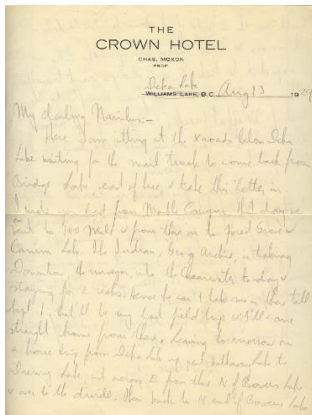 THE
CROWN HOTEL
CHAS. MOXON
PROP.
Deka Lake
WILLIAMS LAKE, B.C. Aug 13 19
My darling
Here I am sitting at the xroads below Deka
Lake waiting for the mail truck to come back from
Bridge Lake, east of here, & take this letter in
I wrote you last from Mahood
went to 100 Mile & from there on to
Canim Lake. The Indian, Georg Archie, is taking
the surveyor into the Clearwater today &
staying for 2 weeks. Hence he can't take me in there till
Sept 1, but'll be my last field trip & I'll come
straight home from there. Leaving tomorrow on
a horse trip from Deka Lake up past Lake to
Lake and across E from there N of Bowers Lake
& over to the divide. Then back to N end of Bowers Lake